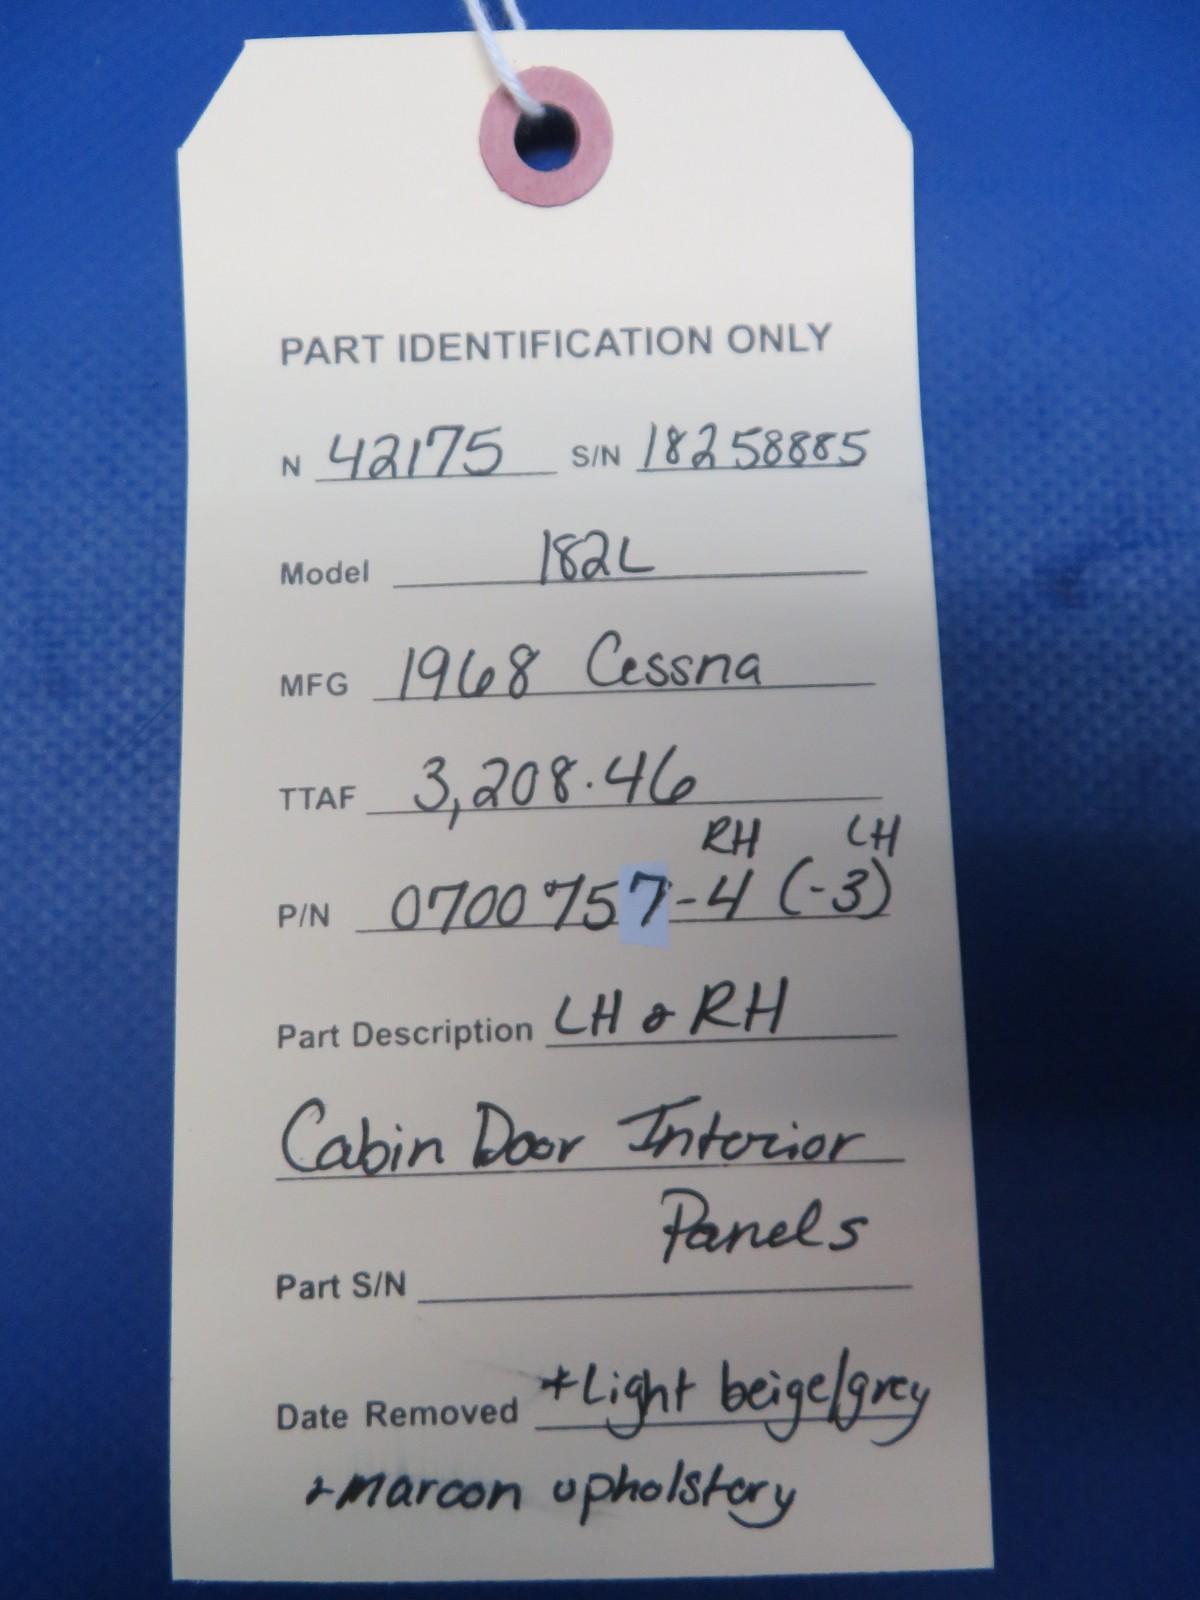 PART IDENTIFICATION ONLY
N 42175 S/N 18258885
Model 182L
MFG 1968 Cessna
TTAF 3,208.46
RH LH
P/N 0700757-4 (-3)
Part Description LH & RH
Cabin Door Interior
Panels
Part S/N
Date Removed *Light beige/grey
& maroon upholstery